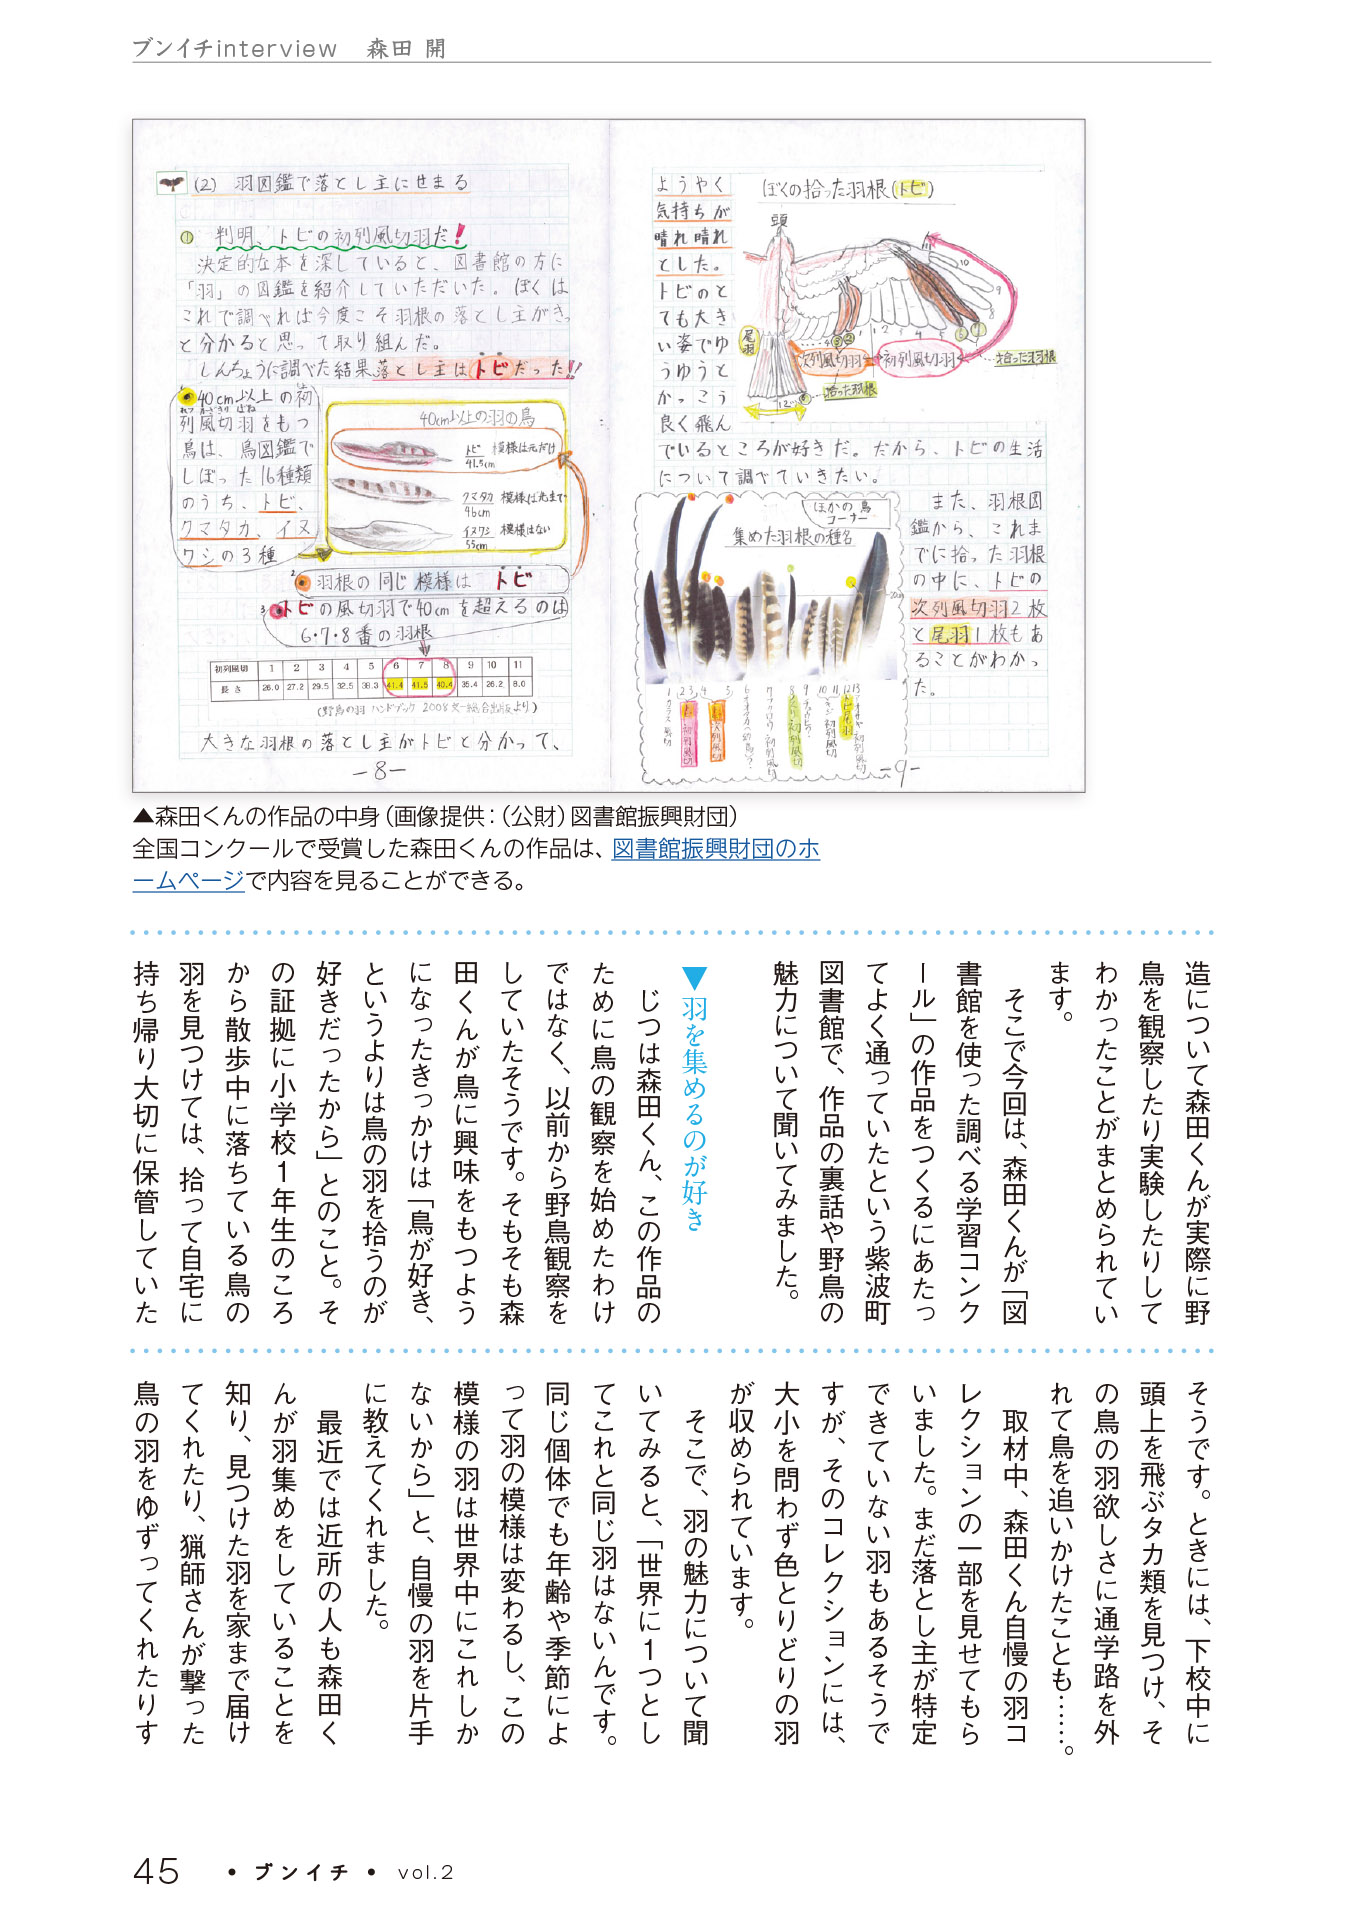 ブンイチinterview　森田 開
(2) 羽図鑑で落とし主にせまる
① 判明、トビの初列風切羽だ!
決定的な本を深していると、図書館の方に
「羽」の図鑑を紹介していただいた。ぼくは
これで調べれば今度こそ羽根の落とし主がきっ
と分かると思って取り組んだ。
しんちょうに調べた結果落とし主はトビだった!!
1 40cm以上の初
列風切羽をもつ
鳥は、鳥図鑑で
しぼった16種類
のうち、トビ、
クマタカ、イヌ
ワシの3種
40cm以上の羽の鳥
トビ 模様は元だけ
41.5cm
クマタカ 模様は先まで
46cm
イヌワシ 模様はない
55cm
2 羽根の同じ模様は トビ
3 トビの風切羽で40cmを超えるのは
6・7・8番の羽根
初列風切 1 2 3 4 5 6 7 8 9 10 11
長さ 26.0 27.2 29.5 32.5 38.3 41.4 41.5 40.4 35.4 26.2 8.0
(野鳥の羽 ハンドブック 2008 文一総合出版より)
大きな羽根の落とし主がトビと分かって、
-8-
ようやく
気持ちが
晴れ晴れ
とした。
トビのと
ても大き
い姿でゆ
うゆうと
かっこう
良く飛ん
でいるところが好きだ。だから、トビの生活
について調べていきたい。
ぼくの拾った羽根(トビ)
頭
尾羽
次列風切羽
初列風切羽
拾った羽根
拾った羽根
ほかの鳥
コーナー
集めた羽根の種名
また、羽根図
鑑から、これま
でに拾った羽根
の中に、トビの
次列風切羽2枚
と尾羽1枚もあ
ることがわかっ
た。
-9-
▲森田くんの作品の中身（画像提供：（公財）図書館振興財団）
全国コンクールで受賞した森田くんの作品は、図書館振興財団のホ
ームページで内容を見ることができる。
造について森田くんが実際に野
鳥を観察したり実験したりして
わかったことがまとめられてい
ます。
そこで今回は、森田くんが「図
書館を使った調べる学習コンク
ール」の作品をつくるにあたっ
てよく通っていたという紫波町
図書館で、作品の裏話や野鳥の
魅力について聞いてみました。
▼羽を集めるのが好き
じつは森田くん、この作品の
ために鳥の観察を始めたわけ
ではなく、以前から野鳥観察を
していたそうです。そもそも森
田くんが鳥に興味をもつよう
になったきっかけは「鳥が好き、
というよりは鳥の羽を拾うのが
好きだったから」とのこと。そ
の証拠に小学校1年生のころ
から散歩中に落ちている鳥の
羽を見つけては、拾って自宅に
持ち帰り大切に保管していた
そうです。ときには、下校中に
頭上を飛ぶタカ類を見つけ、そ
の鳥の羽欲しさに通学路を外
れて鳥を追いかけたことも……。
取材中、森田くん自慢の羽コ
レクションの一部を見せてもら
いました。まだ落とし主が特定
できていない羽もあるそうで
すが、そのコレクションには、
大小を問わず色とりどりの羽
が収められています。
そこで、羽の魅力について聞
いてみると、「世界に1つとし
てこれと同じ羽はないんです。
同じ個体でも年齢や季節によ
って羽の模様は変わるし、この
模様の羽は世界中にこれしか
ないから」と、自慢の羽を片手
に教えてくれました。
最近では近所の人も森田く
んが羽集めをしていることを
知り、見つけた羽を家まで届け
てくれたり、猟師さんが撃った
鳥の羽をゆずってくれたりす
45 ・ブンイチ・ vol.2